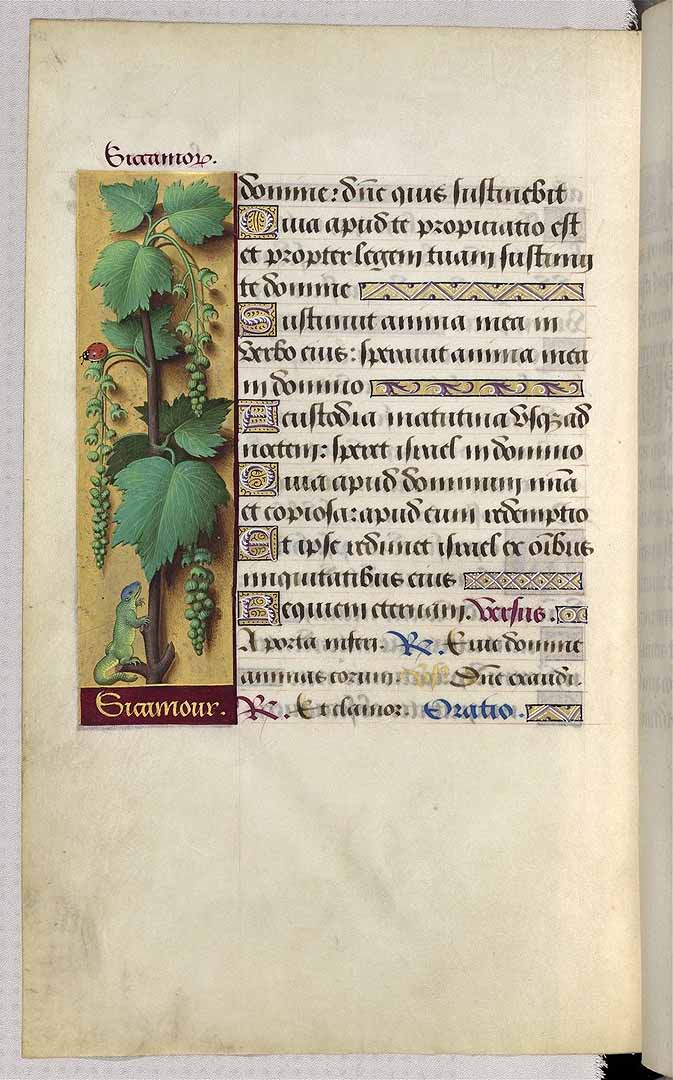 Siccamor.
domine: dñe quis sustinebit
Quia apud te propiciatio est
et propter legem tuam sustinui
te domine
Sustinuit anima mea in
verbo eius: speravit anima mea
in domino
A custodia matutina usqz ad
noctem: speret israel in domino
Quia apud dominum mīa
et copiosa: apud eum redemptio
Et ipse redimet israel ex oībus
iniquitatibus eius
Requiem eternam. Versus.
A porta inferi. R. Erue domine
animas eorum. Dñe exaudi.
R. Et clamor. Oratio.
Sicamour.